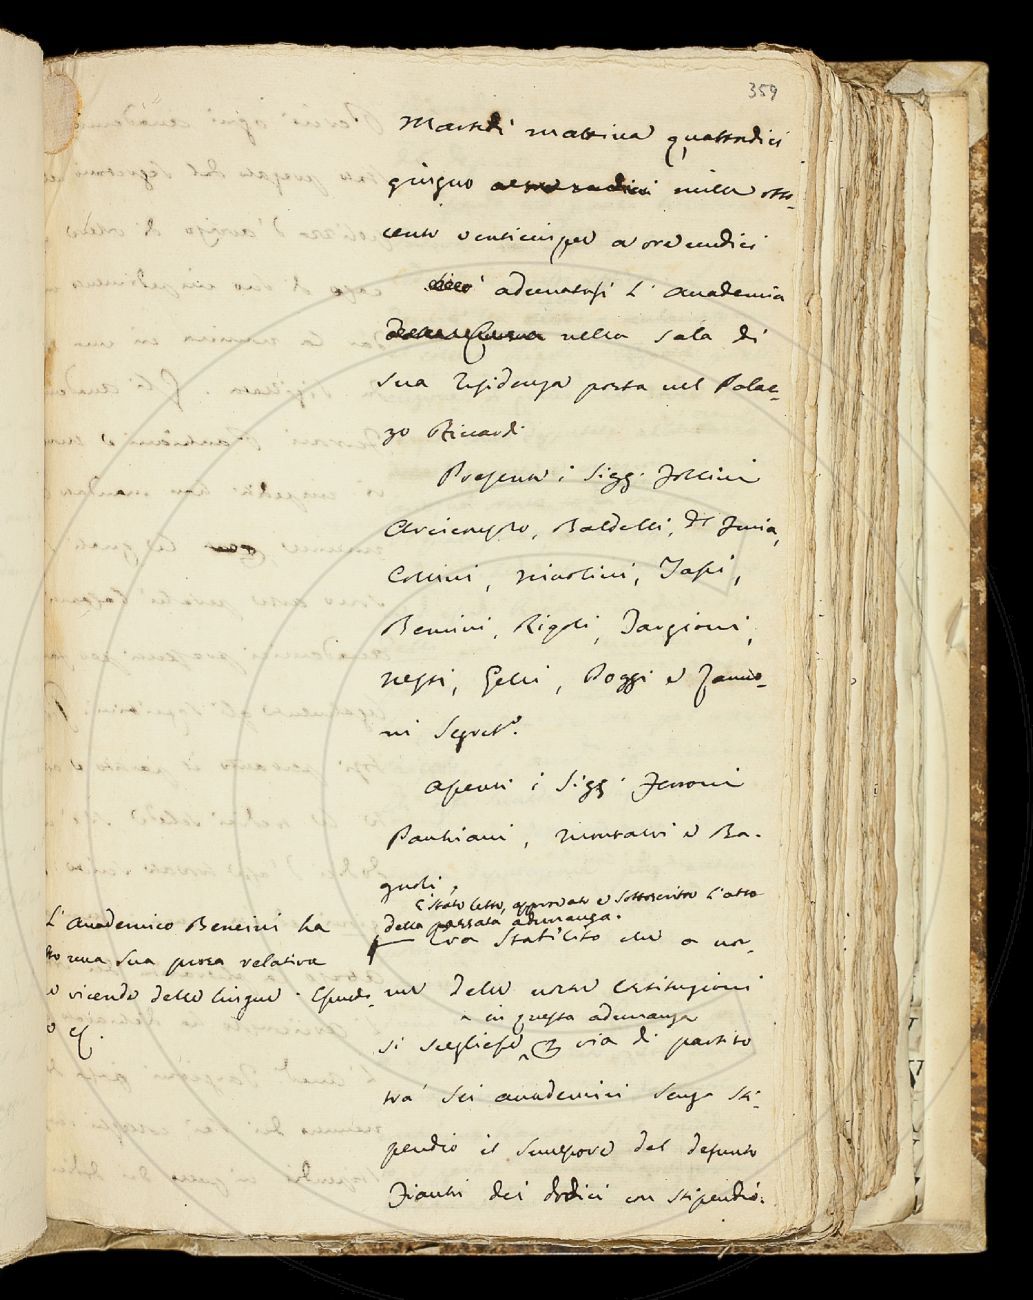 359
Martedì mattina quattordici
giugno mille otto-
cento venticinque a ore undici
adunatasi l'Accademia
nella sala di
sua residenza posta nel Palaz-
zo Riccardi
Presenti i Sigg. Follini
Arciconsolo, Baldelli, Del Furia,
Collini, Niccolini, Tassi,
Bencini, Rigoli, Targioni,
Nesti, Gelli, Poggi e Zanno-
ni Segret.o
Assenti i Sigg. Ferroni
Panchiani, Montalvi e Ba-
gnoli.
È stato letto, approvato e sottoscritto l'atto
della passata adunanza.
Era stabilito che a nor-
ma delle nostre Costituzioni
in questa adunanza
si scegliesse via di partito
tra' sei accademici senza sti-
pendio il successore del defunto
Fiacchi dei dodici con stipendio.
L'Accademico Bencini ha
una sua prosa relativa
vicende delle lingue. Essendo-